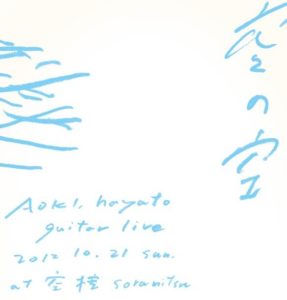 空の空
Aoki, hayato
guitar live
2012 10. 21 sun.
at 空樽 soramitsu